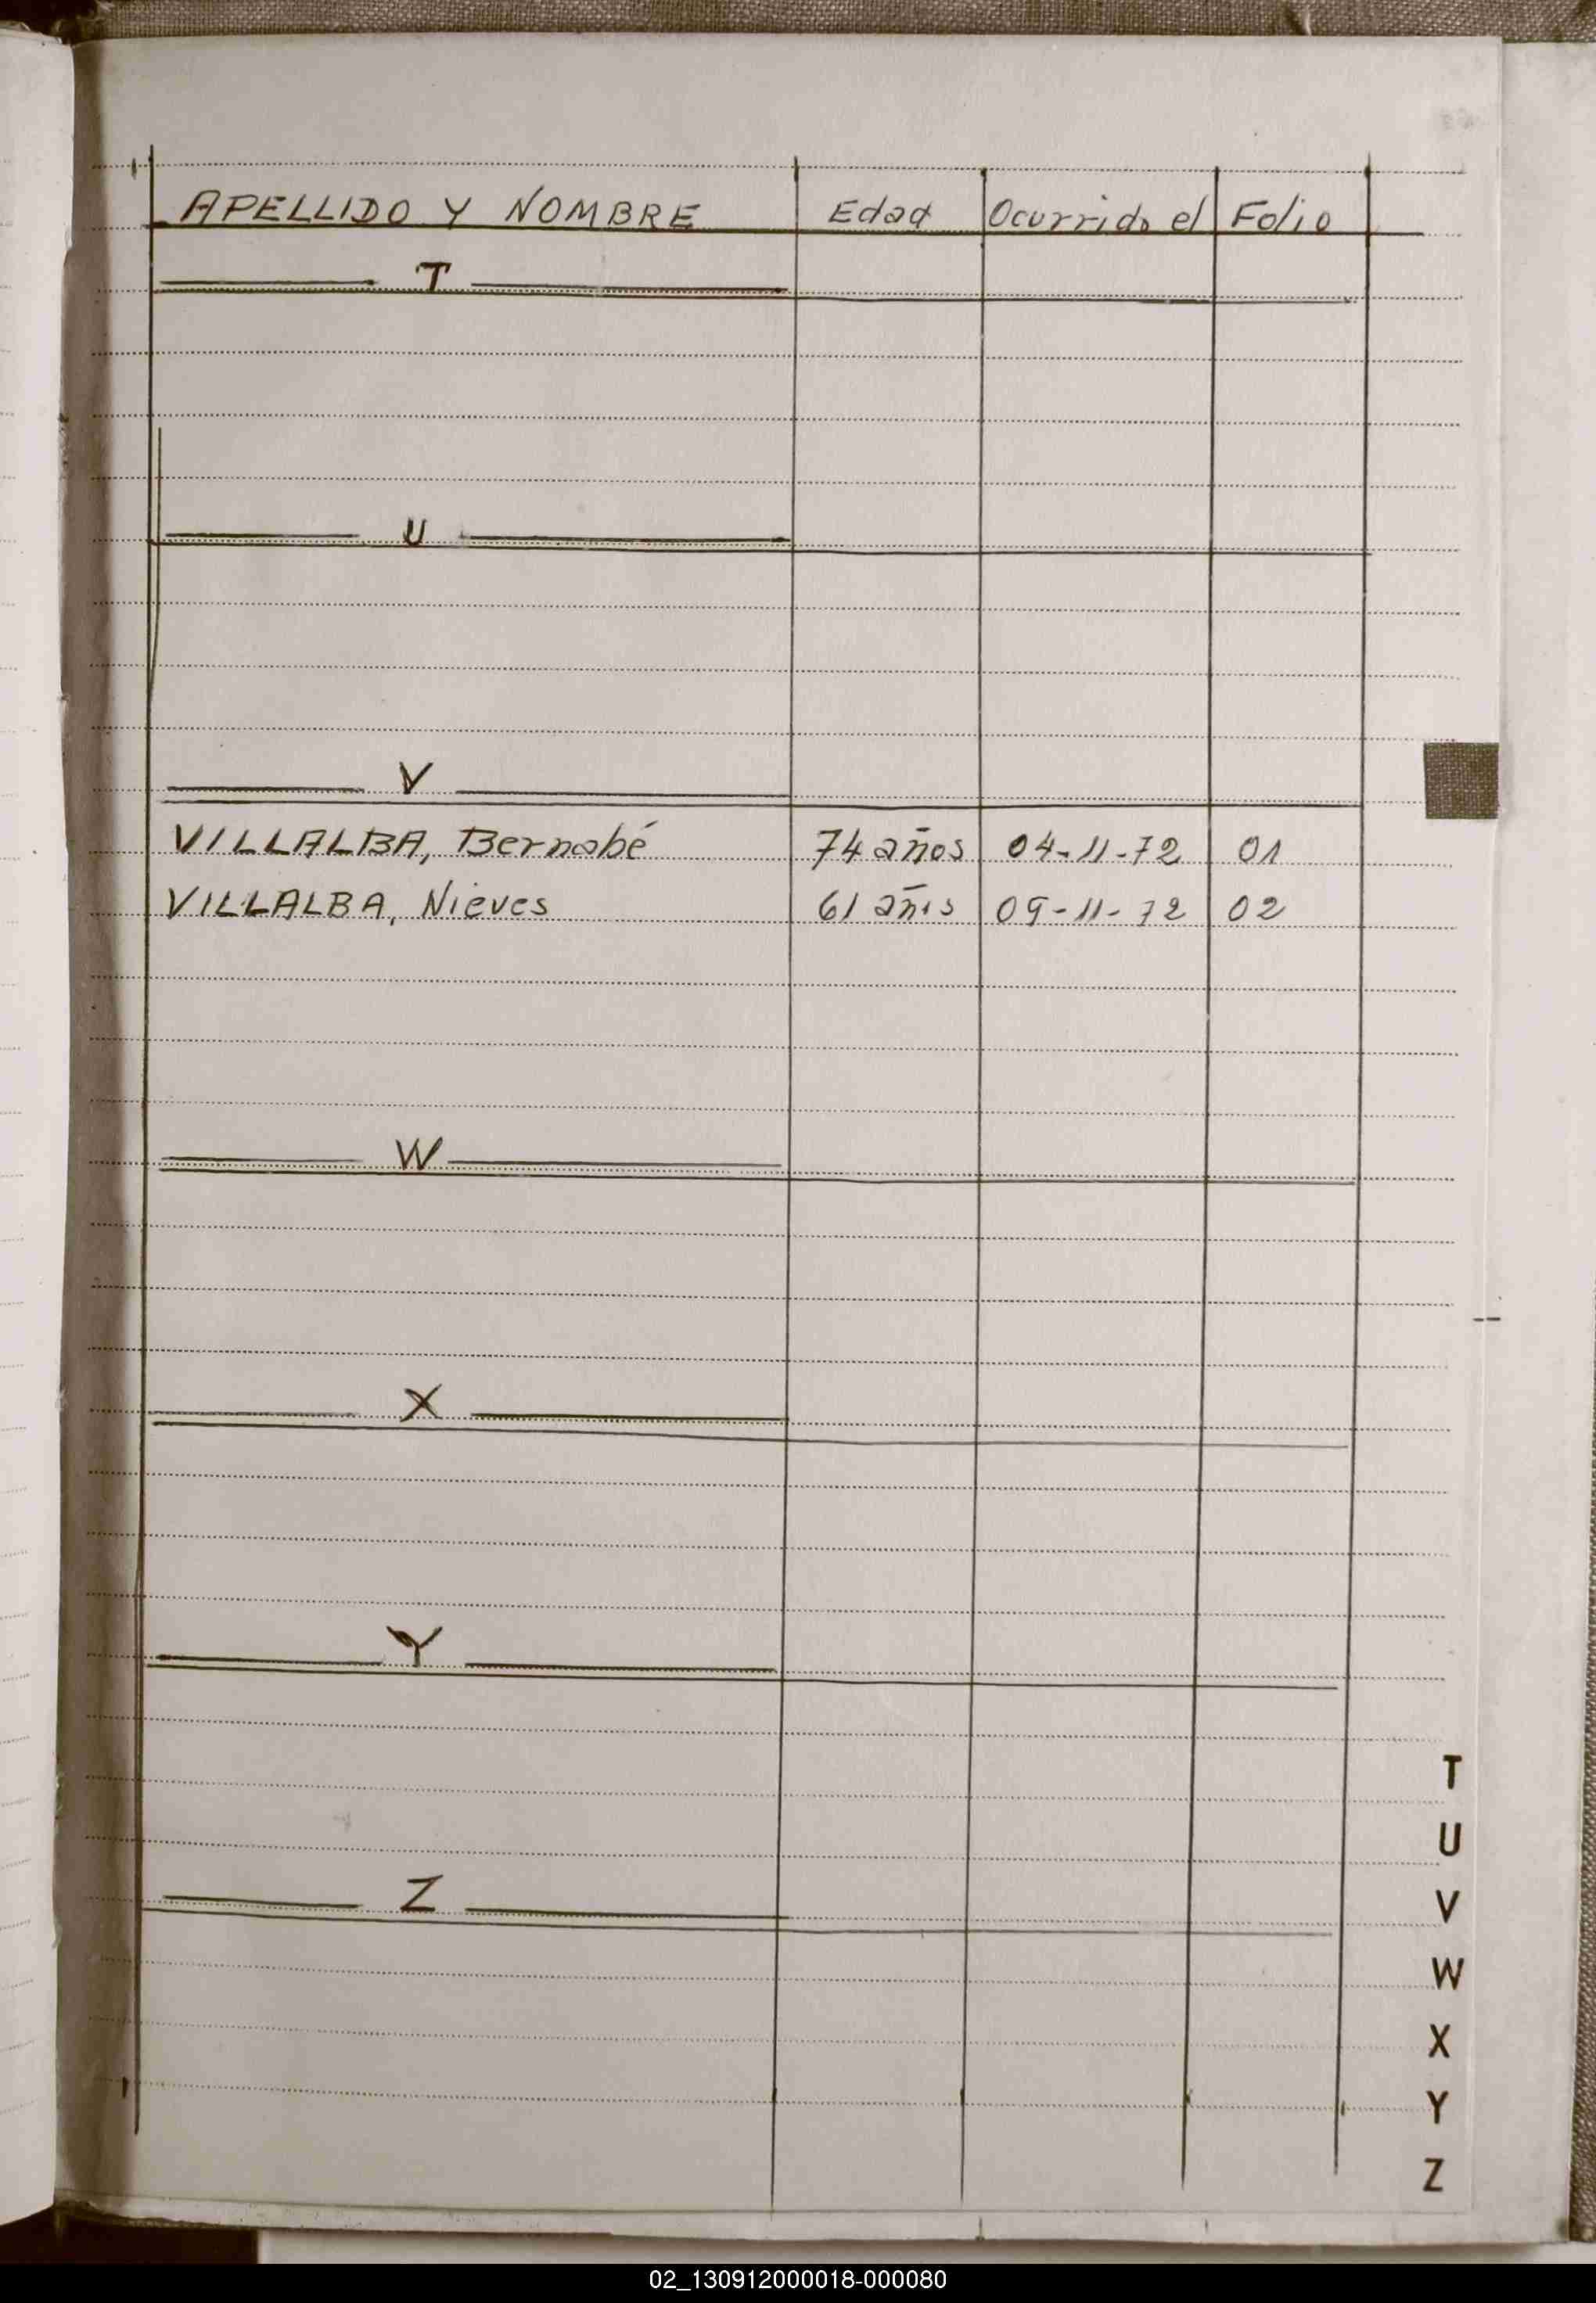 APELLIDO Y NOMBRE Edad Ocurrido el Folio
T
U
V
VILLALBA, Bernabé 74 años 04-11-72 01
VILLALBA, Nieves 61 años 09-11-72 02
W
X
Y
Z
T
U
V
W
X
Y
Z
02_130912000018-000080